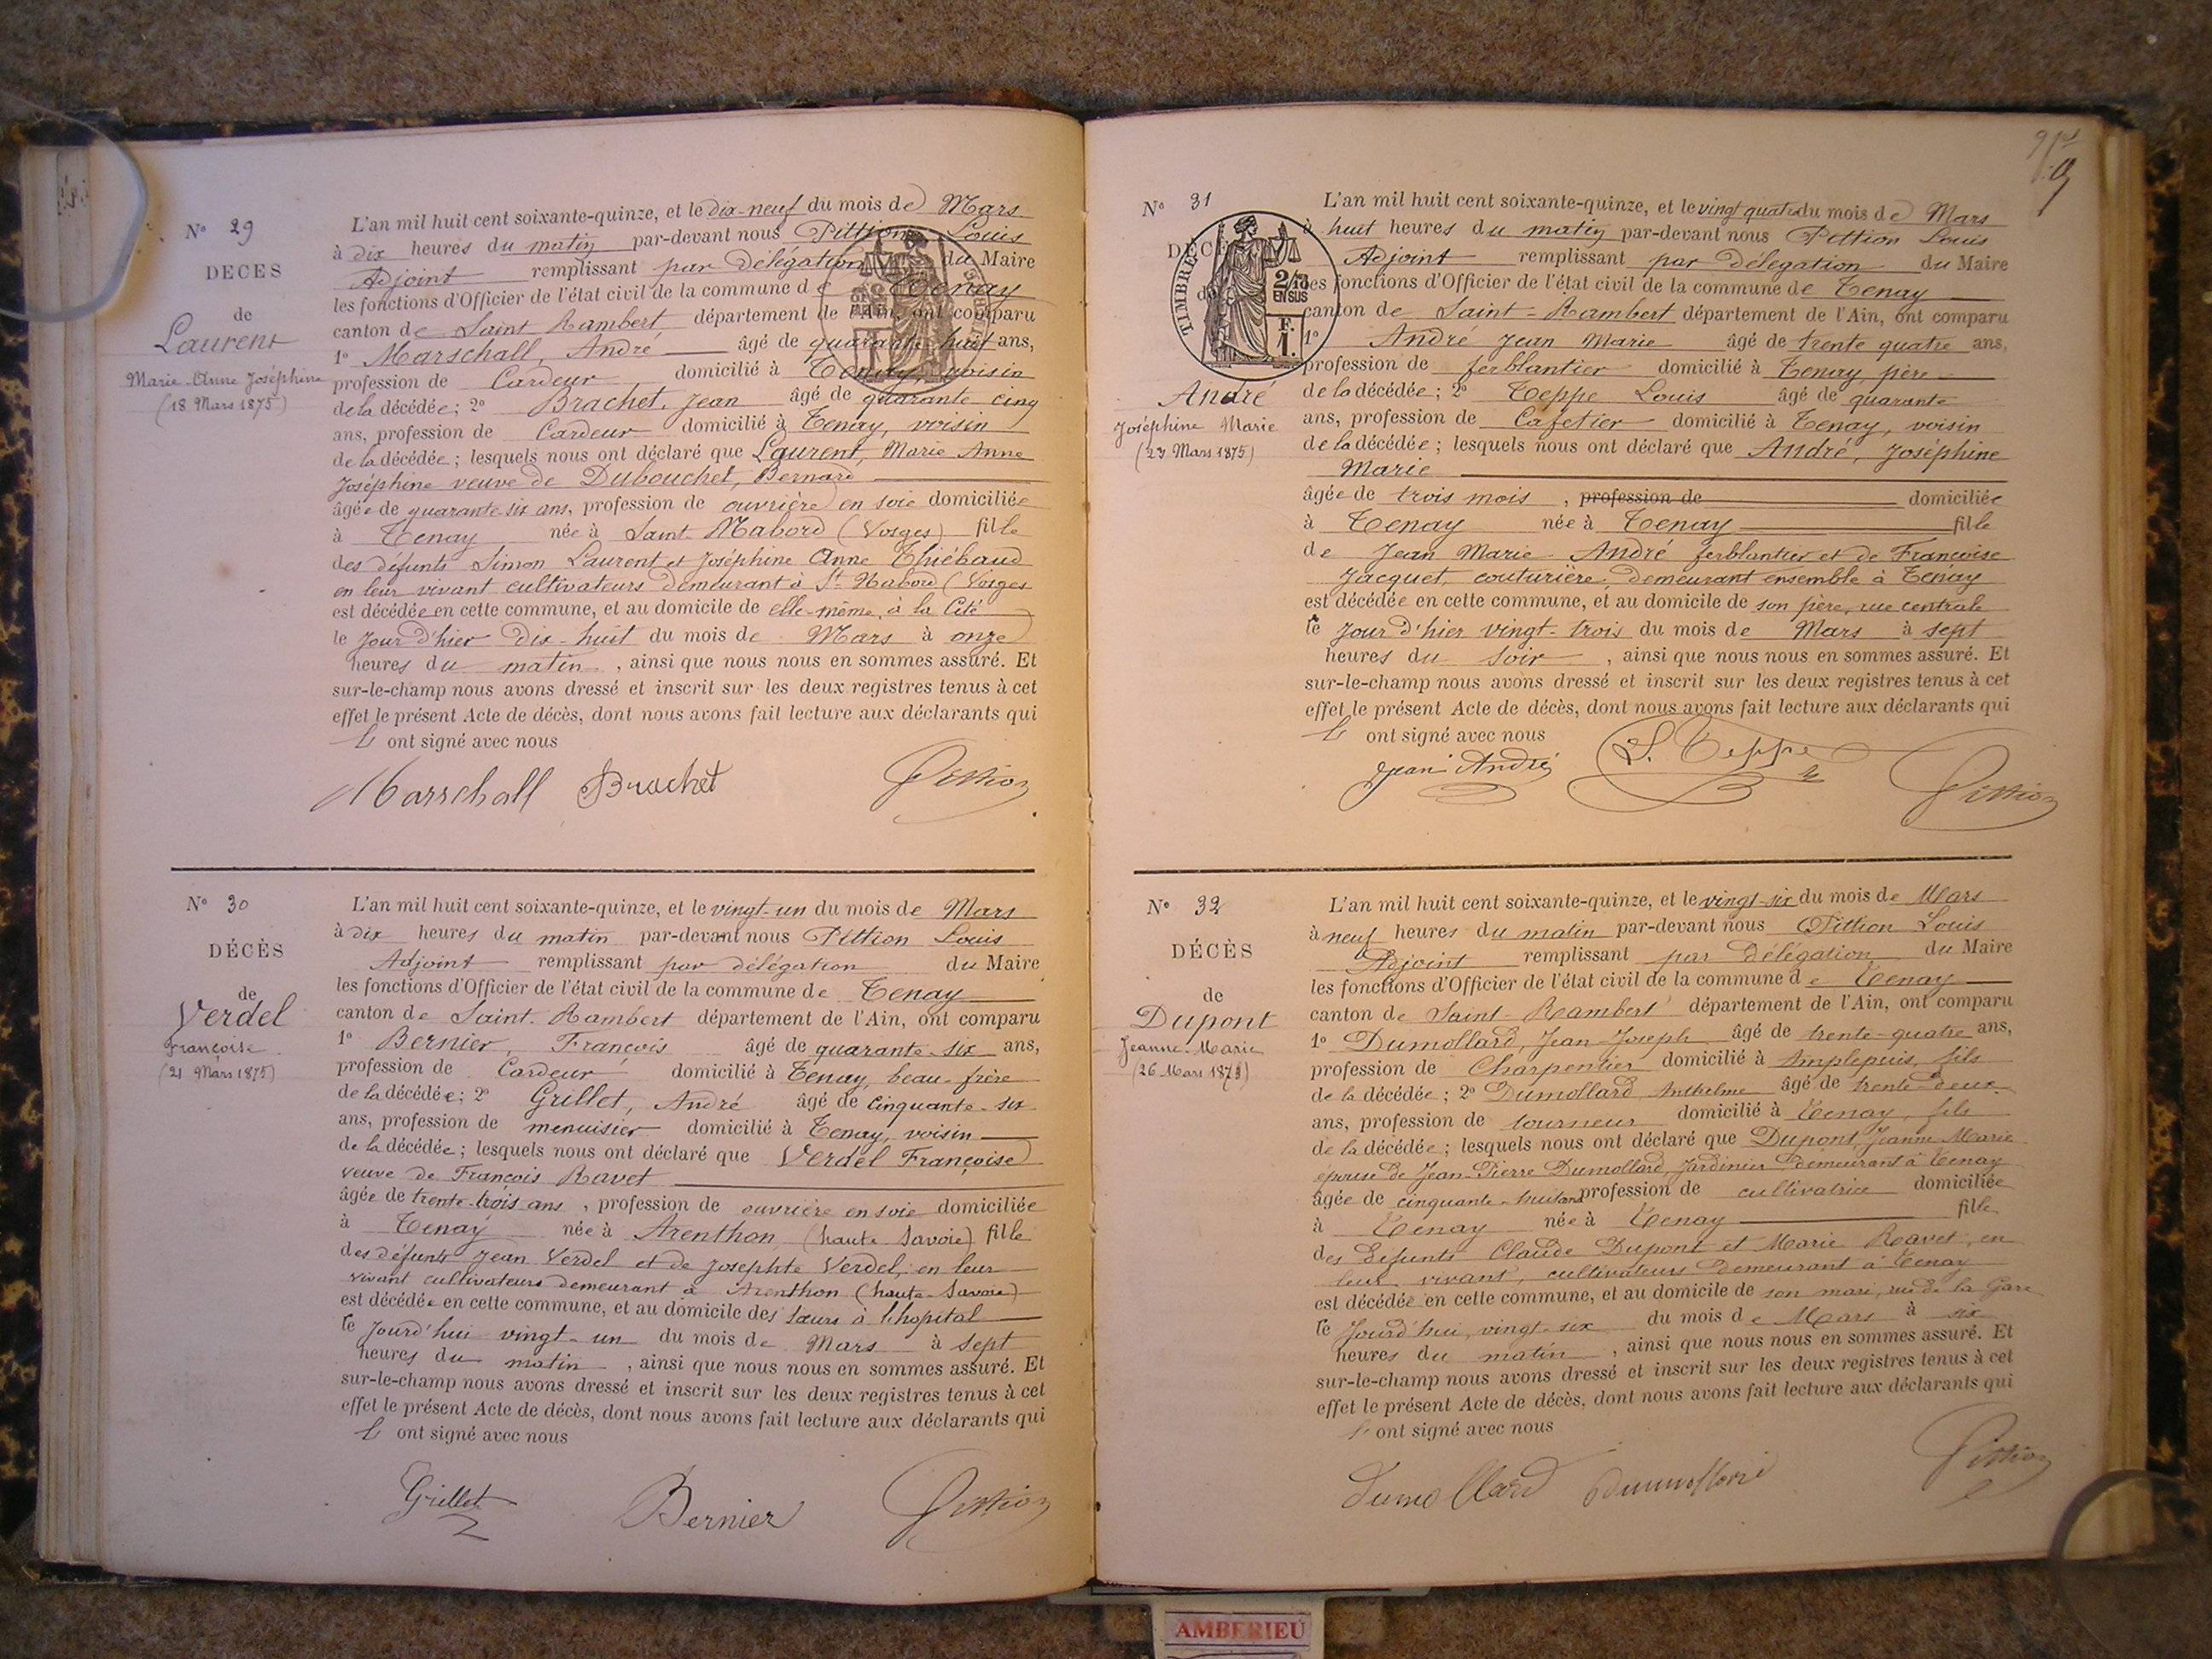 N° 29
DECES
de
Laurent
Marie-Anne Joséphine
(18 Mars 1875)
L'an mil huit cent soixante-quinze, et le dix-neuf du mois de Mars
à dix heures du matin par-devant nous Pittion Louis
Adjoint remplissant par délégation du Maire
les fonctions d'Officier de l'état civil de la commune de Tenay
canton de Saint Rambert département de l'Ain, ont comparu
1° Marschall, André âgé de quarante huit ans,
profession de Cardeur domicilié à Tenay, voisin
de la décédée; 2° Brachet, Jean âgé de quarante cinq
ans, profession de Cardeur domicilié à Tenay, voisin
de la décédée; lesquels nous ont déclaré que Laurent, Marie Anne
Joséphine veuve de Dubouchet, Bernard
âgée de quarante-six ans, profession de ouvrière en soie domiciliée
à Tenay née à Saint-Nabord (Vosges) fille
des défunts Simon Laurent et Joséphine Anne Thiébaud
en leur vivant cultivateurs demeurant à St Nabord (Vosges
est décédée en cette commune, et au domicile de elle-même, à la Cité
le jour d'hier dix-huit du mois de Mars à onze
heures du matin, ainsi que nous nous en sommes assuré. Et
sur-le-champ nous avons dressé et inscrit sur les deux registres tenus à cet
effet le présent Acte de décès, dont nous avons fait lecture aux déclarants qui
ont signé avec nous
Marschall Brachet Pittion
N° 30
DÉCÈS
de
Verdel
Françoise
(21 Mars 1875)
L'an mil huit cent soixante-quinze, et le vingt-un du mois de Mars
à dix heures du matin par-devant nous Pittion Louis
Adjoint remplissant par délégation du Maire
les fonctions d'Officier de l'état civil de la commune de Tenay
canton de Saint-Rambert département de l'Ain, ont comparu
1° Bernier François âgé de quarante-six ans,
profession de Cardeur domicilié à Tenay, beau-frère
de la décédée; 2° Grillet, André âgé de cinquante-six
ans, profession de menuisier domicilié à Tenay, voisin
de la décédée; lesquels nous ont déclaré que Verdel Françoise
veuve de François Ravet
âgée de trente-trois ans, profession de ouvrière en soie domiciliée
à Tenay née à Arenthon (haute Savoie) fille
des défunts Jean Verdel et de Josephte Verdel, en leur
vivant cultivateurs demeurant à Arenthon (haute-Savoie)
est décédée en cette commune, et au domicile des sœurs à l'hopital
le jourd'hui vingt-un du mois de Mars à sept
heures du matin, ainsi que nous nous en sommes assuré. Et
sur-le-champ nous avons dressé et inscrit sur les deux registres tenus à cet
effet le présent Acte de décès, dont nous avons fait lecture aux déclarants qui
ont signé avec nous
Grillet Bernier Pittion
N° 31
DÉCÈS
de
TIMBRE
2/10
EN SUS
F.
1.
André
Joséphine Marie
(23 Mars 1875)
L'an mil huit cent soixante-quinze, et le vingt quatre du mois de Mars
à huit heures du matin par-devant nous Pittion Louis
Adjoint remplissant par délégation du Maire
les fonctions d'Officier de l'état civil de la commune de Tenay
canton de Saint-Rambert département de l'Ain, ont comparu
1° André Jean Marie âgé de trente quatre ans,
profession de ferblantier domicilié à Tenay, père
de la décédée; 2° Teppe Louis âgé de quarante
ans, profession de Cafetier domicilié à Tenay, voisin
de la décédée; lesquels nous ont déclaré que André, Joséphine
Marie
âgée de trois mois, profession de domiciliée
à Tenay née à Tenay fille
de Jean Marie André ferblantier et de Françoise
Jacquet, couturière, demeurant ensemble à Tenay
est décédée en cette commune, et au domicile de son père, rue centrale
le jour d'hier vingt-trois du mois de Mars à sept
heures du soir, ainsi que nous nous en sommes assuré. Et
sur-le-champ nous avons dressé et inscrit sur les deux registres tenus à cet
effet le présent Acte de décès, dont nous avons fait lecture aux déclarants qui
ont signé avec nous
Jean André L. Teppe Pittion
N° 32
DÉCÈS
de
Dupont
Jeanne-Marie
(26 Mars 1875)
L'an mil huit cent soixante-quinze, et le vingt-six du mois de Mars
à neuf heures du matin par-devant nous Pittion Louis
Adjoint remplissant par délégation du Maire
les fonctions d'Officier de l'état civil de la commune de Tenay
canton de Saint-Rambert département de l'Ain, ont comparu
1° Dumollard, Jean-Joseph âgé de trente-quatre ans,
profession de Charpentier domicilié à Amplepuis, fils
de la décédée; 2° Dumollard Anthelme âgé de trente-deux
ans, profession de tourneur domicilié à Tenay, fils
de la décédée; lesquels nous ont déclaré que Dupont, Jeanne Marie
épouse de Jean-Pierre Dumollard, Jardinier demeurant à Tenay
âgée de cinquante-huit ans profession de cultivatrice domiciliée
à Tenay née à Tenay fille
des défunts Claude Dupont et Marie Ravet, en
leur vivant, cultivateurs demeurant à Tenay
est décédée en cette commune, et au domicile de son mari, rue de la Gare
le jourd'hui, vingt-six du mois de Mars à six
heures du matin, ainsi que nous nous en sommes assuré. Et
sur-le-champ nous avons dressé et inscrit sur les deux registres tenus à cet
effet le présent Acte de décès, dont nous avons fait lecture aux déclarants qui
ont signé avec nous
Dumollard Dumollard Pittion
AMBERIEU